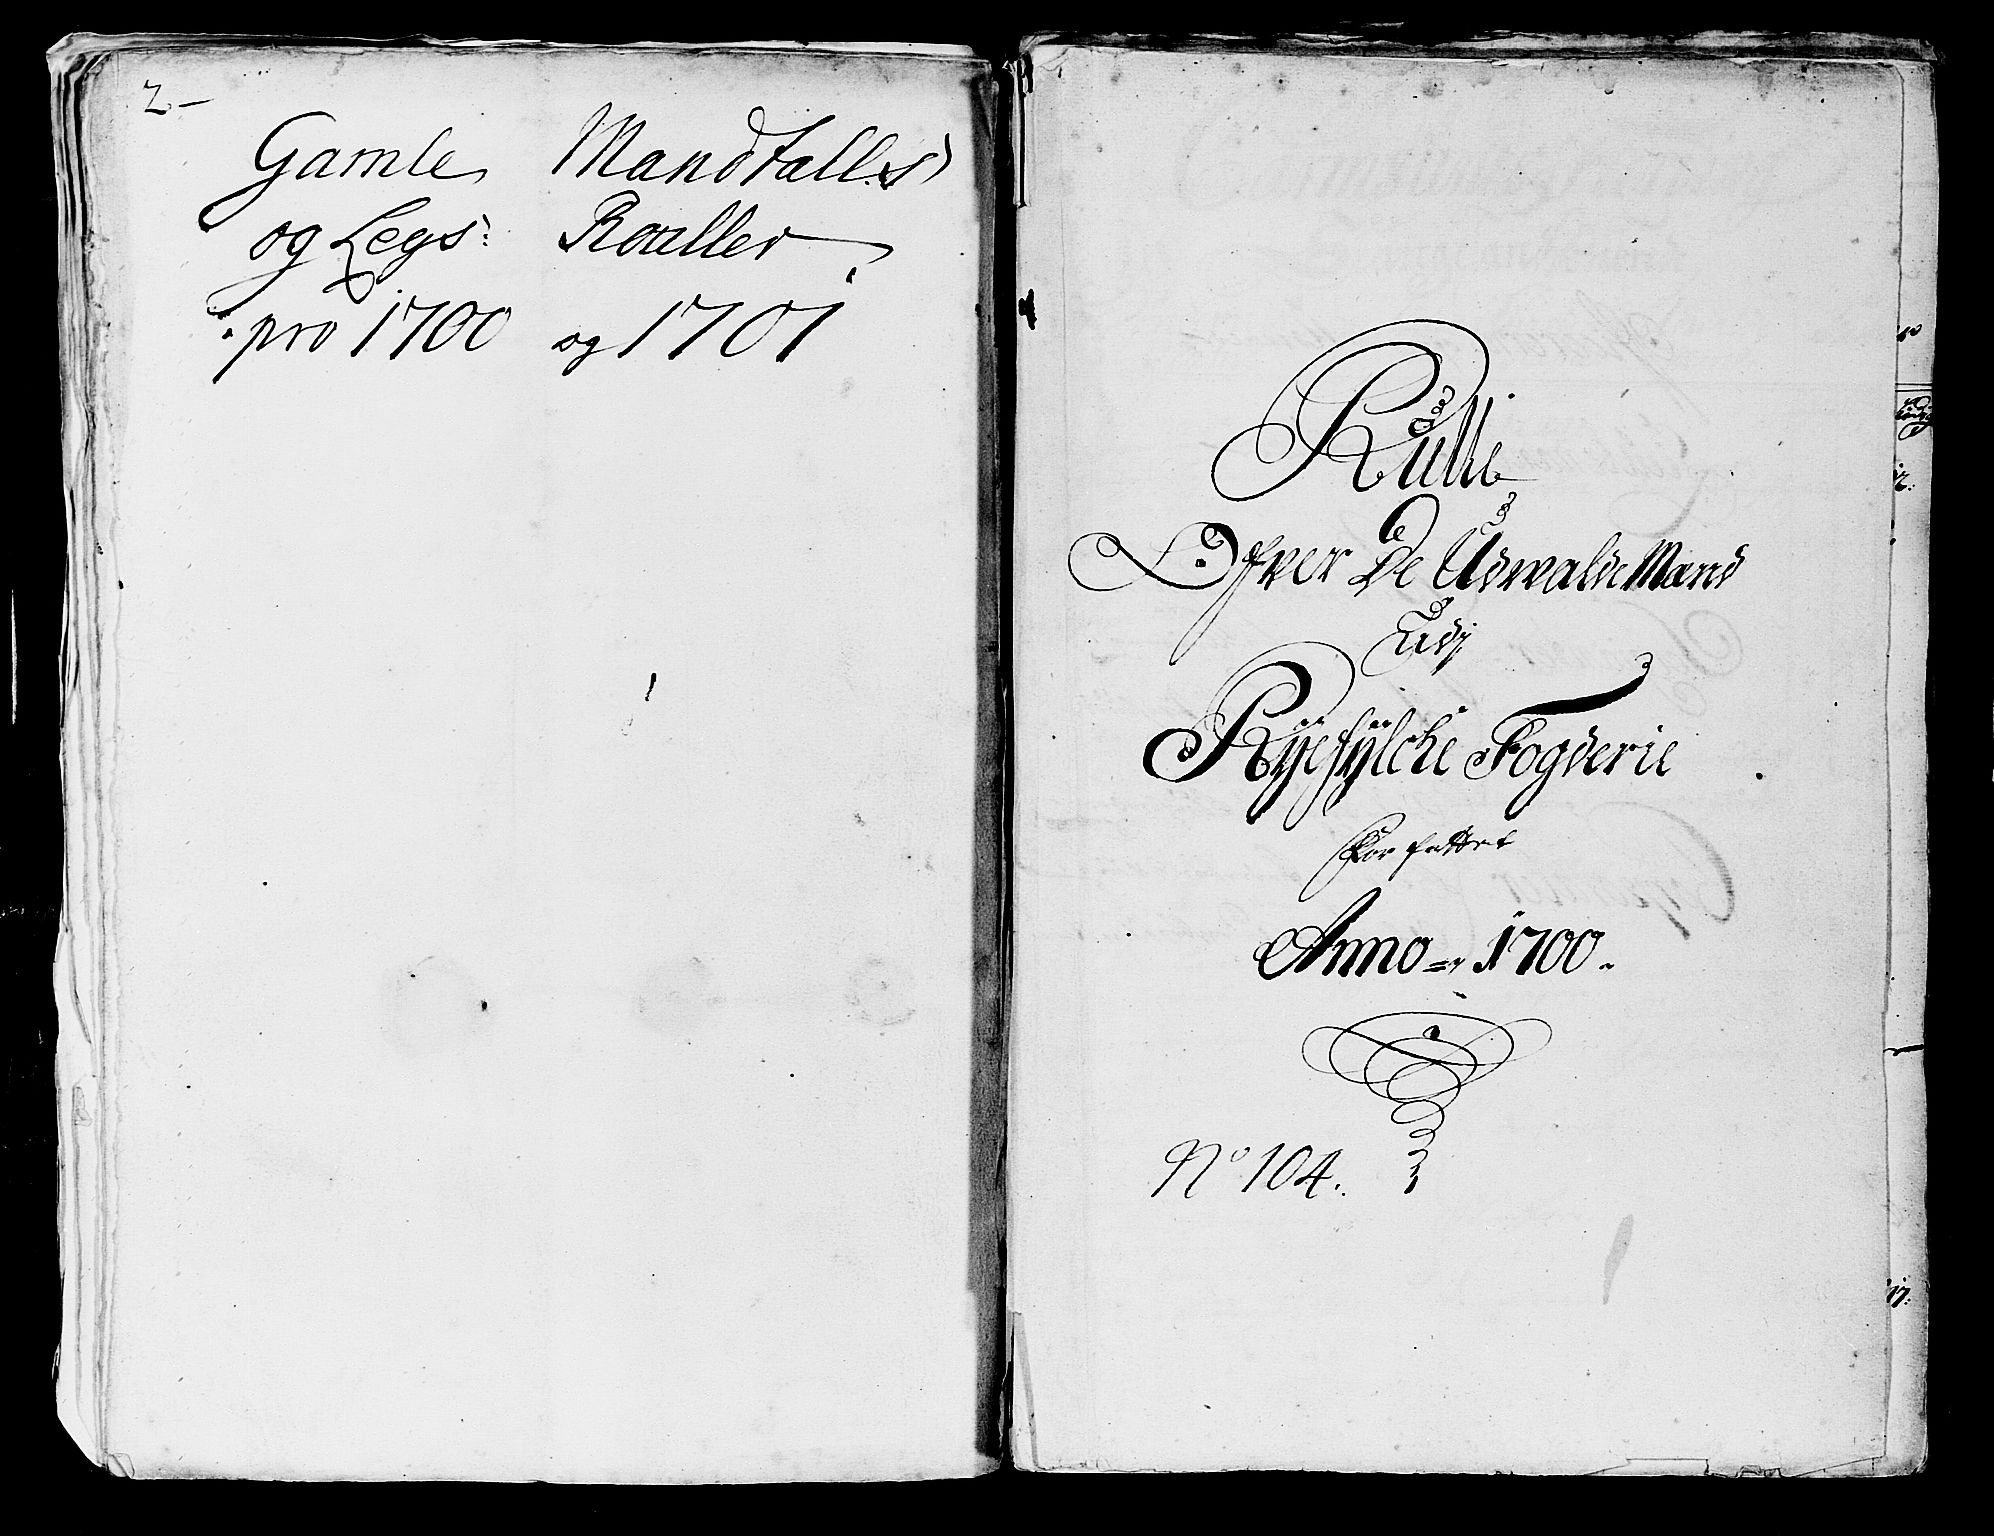 2-
Gamle Mandtalls
og Legs: Roueller
pro 1700 og 1701
Rulle
Ofver De Udwalde Mænd
Udj
Ryefylcke Fogderie
Forfattet
Anno 1700.
No 104.
17: